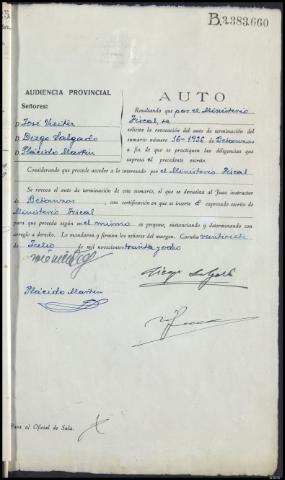 B.2.383.660
AUDIENCIA PROVINCIAL
Señores:
D José Vieiter
D Diego Salgado
D Plácido Martin
AUTO
Resultando que por el Ministerio
Fiscal, se
solicita la revocación del auto de terminación del
sumario número 56-1936 de Betanzos
a fin de que se practiquen las diligencias que
expresa el precedente escrito.
Considerando que procede acceder a lo interesado por el Ministerio Fiscal
Se revoca el auto de terminación de este sumario, el que se devuelva al Juez instructor
de Betanzos, con certificación en que se inserte el expresado escrito de
Ministerio Fiscal
para que proceda según en el mismo se propone, sustanciando y determinando con
arreglo a derecho. Lo mandaron y firman los señores del margen. Coruña veintisiete
de Julio de mil novecientos treinta y ocho
Diego Salgado
Plácido Martin
Para el Oficial de Sala.